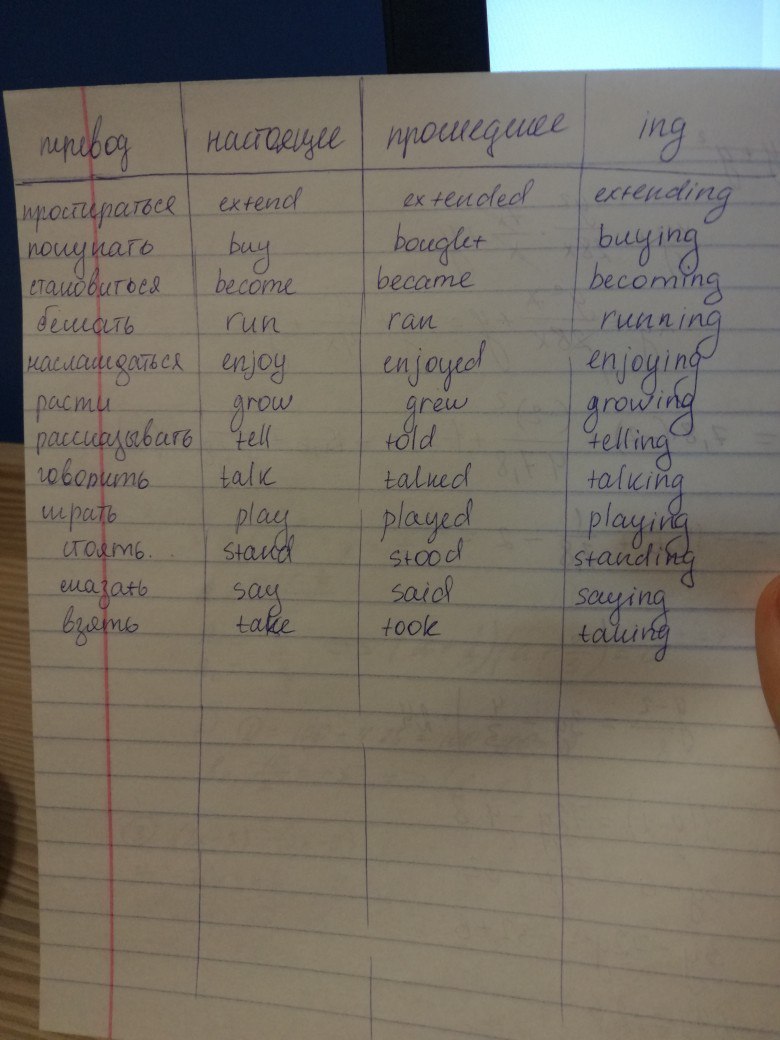 перевод настоящее прошедшее ing
простираться extend extended extending
покупать buy bought buying
становиться become became becoming
бежать run ran running
наслаждаться enjoy enjoyed enjoying
расти grow grew growing
рассказывать tell told telling
говорить talk talked talking
играть play played playing
стоять. stand stood standing
сказать say said saying
взять take took taking